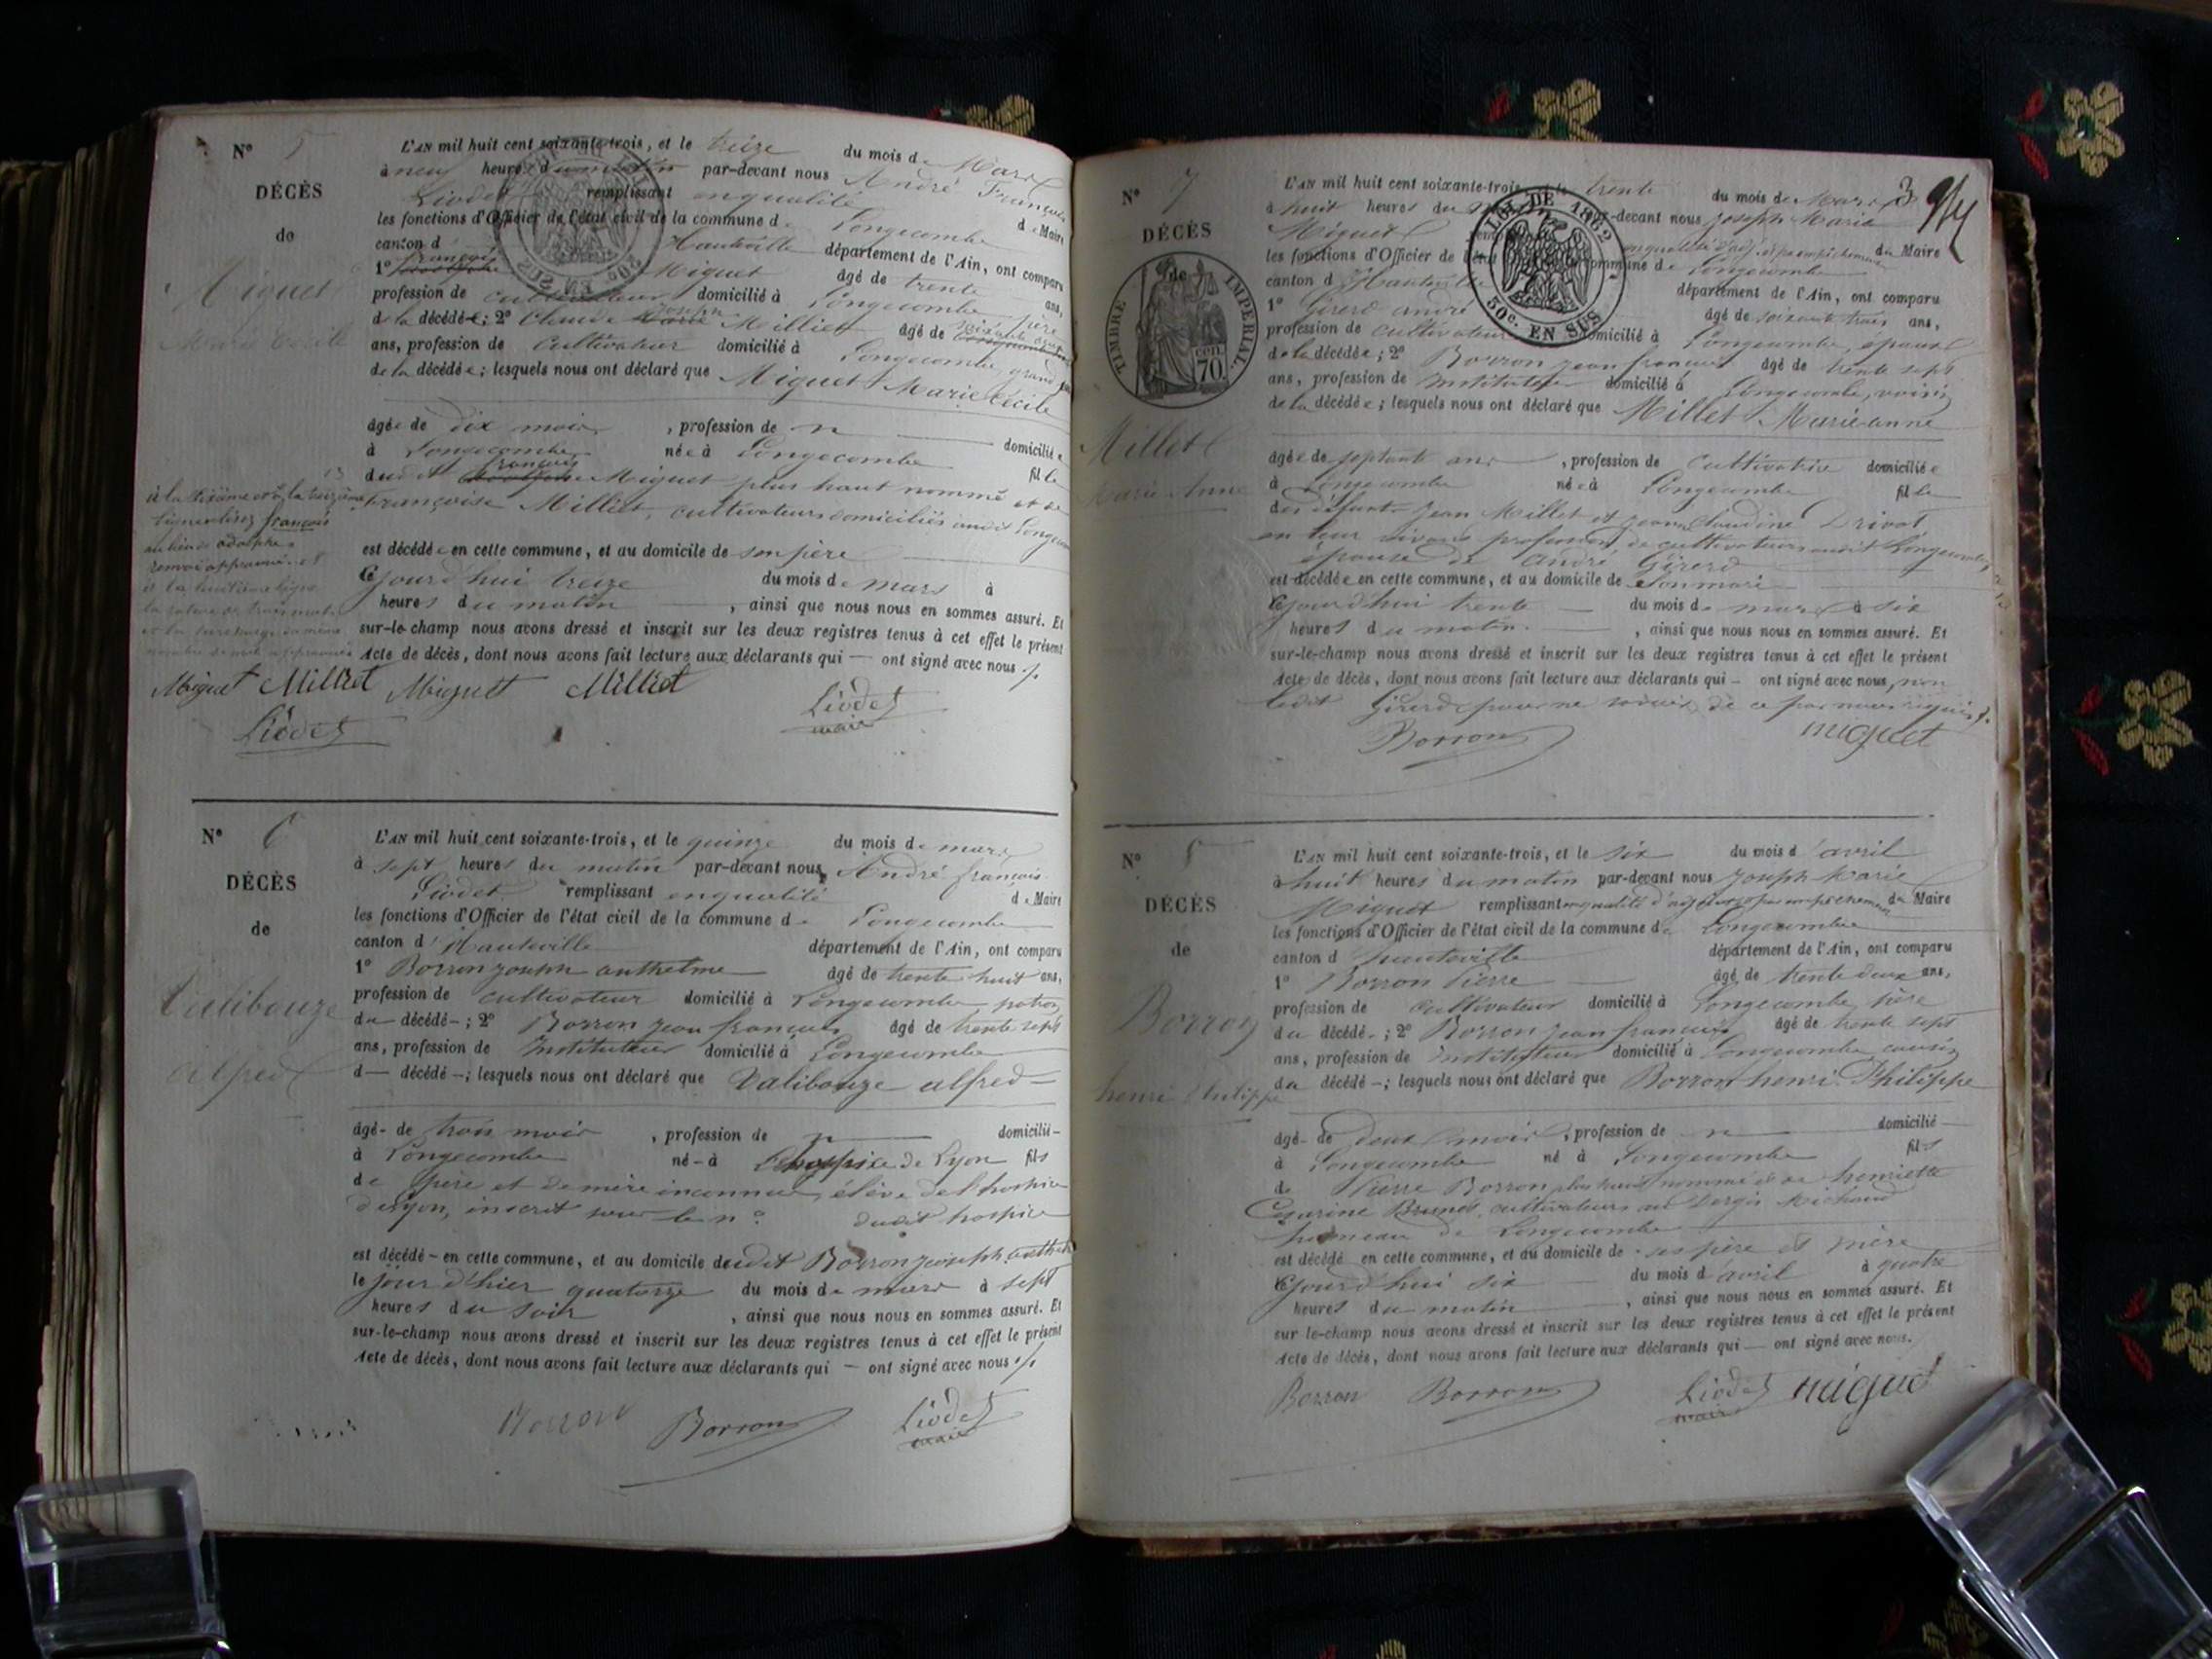 N° 5
DÉCÈS
de
Miguet
Marie Cécile
L'AN mil huit cent soixante-trois, et le treize du mois de Mars
à neuf heures du matin par-devant nous André François
Liodet remplissant en qualité de Maire
les fonctions d'Officier de l'état civil de la commune de Longecombe
canton d' Hauteville département de l'Ain, ont comparu
1° françois Miguet âgé de trente ans,
profession de cultivateur domicilié à Longecombe père
de la décédée; 2° Claude Joseph Milliet âgé de
ans, profession de Cultivateur domicilié à Longecombe, grand
de la décédée; lesquels nous ont déclaré que Miguet Marie Cécile
âgée de dix mois, profession de domiciliée
à Longecombe née à Longecombe fille
dudit françois Miguet plus haut nommé et de
françoise Milliet, cultivateurs domiciliés audit Longecombe
est décédée en cette commune, et au domicile de son père
Cejourd'hui treize du mois de mars à
heures du matin, ainsi que nous nous en sommes assuré. Et
sur-le-champ nous avons dressé et inscrit sur les deux registres tenus à cet effet le présent
Acte de décès, dont nous avons fait lecture aux déclarants qui — ont signé avec nous
à la sixième et à la treizième
ligne lisez françois
au lieu de adolphe
renvoi approuvé. et
à la huitième ligne
la rature de trois mots
et la surcharge
Miguet Milliet Miguet Milliet Liodet
maire
Liodet
N° 6
DÉCÈS
de
Valibouze
alfred
L'AN mil huit cent soixante-trois, et le quinze du mois de mars
à sept heures du matin par-devant nous, André françois
Liodet remplissant en qualité de Maire
les fonctions d'Officier de l'état civil de la commune de Longecombe
canton d' Hauteville département de l'Ain, ont comparu
1° Borron joseph anthelme âgé de trente huit ans,
profession de cultivateur domicilié à Longecombe patron
du décédé-; 2° Borron jean françois âgé de trente sept
ans, profession de Instituteur domicilié à Longecombe
d— décédé-; lesquels nous ont déclaré que Valibouze alfred —
âgé- de trois mois, profession de domicilié-
à Longecombe né-à L'hospice de Lyon fils
de père et de mère inconnus, élève de l'hospice
de Lyon, inscrit sous le n° dudit hospice
est décédé - en cette commune, et au domicile dudit Borron joseph anthelme
le jour d'hier quatorze du mois de mars à sept
heures du soir, ainsi que nous nous en sommes assuré. Et
sur-le-champ nous avons dressé et inscrit sur les deux registres tenus à cet effet le présent
Acte de décès, dont nous avons fait lecture aux déclarants qui — ont signé avec nous
Borron Borron Liodet
maire
3
N° 7
DÉCÈS
de
TIMBRE IMPÉRIAL
cen. 70
LOI DE 1862
50c. EN SUS
Millet
Marie Anne
L'AN mil huit cent soixante-trois, et le trente du mois de Mars
à huit heures du par-devant nous joseph Marie
Miguet en qualité d'adj. et par empêchement du Maire
les fonctions d'Officier de l'état commune de Longecombe
canton d'Hauteville département de l'Ain, ont comparu
1° Girerd andré âgé de soixante trois ans,
profession de cultivateur domicilié à Longecombe, époux
de la décédée; 2° Borron jean françois âgé de trente sept
ans, profession de Instituteur domicilié à Longecombe, voisin
de la décédée; lesquels nous ont déclaré que Millet Marie anne
âgée de septante ans, profession de Cultivatrice domiciliée
à Longecombe née à Longecombe fille
des défunts Jean Millet et jeanne Claudine Drivat
en leur vivant profession de cultivateurs audit Longecombe,
épouse de andré Girerd
est décédée en cette commune, et au domicile de son mari
Cejourd'hui trente du mois de mars à six
heures du matin, ainsi que nous nous en sommes assuré. Et
sur-le-champ nous avons dressé et inscrit sur les deux registres tenus à cet effet le présent
Acte de décès, dont nous avons fait lecture aux déclarants qui — ont signé avec nous, non
ledit Girerd pour ne savoir de ce par nous requis
Borron miguet
N° 8
DÉCÈS
de
Borron
henri Philippe
L'AN mil huit cent soixante-trois, et le six du mois d'avril
à huit heures du matin par-devant nous joseph Marie
Miguet remplissant en qualité d'adjoint et par empêchement du Maire
les fonctions d'Officier de l'état civil de la commune de Longecombe
canton d hauteville département de l'Ain, ont comparu
1° Borron Pierre âgé de trente deux ans,
profession de cultivateur domicilié à Longecombe père
du décédé-; 2° Borron jean françois âgé de trente sept
ans, profession de Instituteur domicilié à Longecombe cousin
du décédé-; lesquels nous ont déclaré que Borron henri Philippe
âgé- de deux mois, profession de domicilié-
à Longecombe né à Longecombe fils
de Pierre Borron plus haut nommé et de henriette
Césarine Brunet, cultivateurs au Michaud
hameau de Longecombe
est décédé en cette commune, et au domicile de ses père et mère
Cejourd'hui six du mois d'avril à quatre
heures du matin, ainsi que nous nous en sommes assuré. Et
sur le-champ nous avons dressé et inscrit sur les deux registres tenus à cet effet le présent
Acte de décès, dont nous avons fait lecture aux déclarants qui — ont signé avec nous.
Borron Borron Liodet miguet
maire